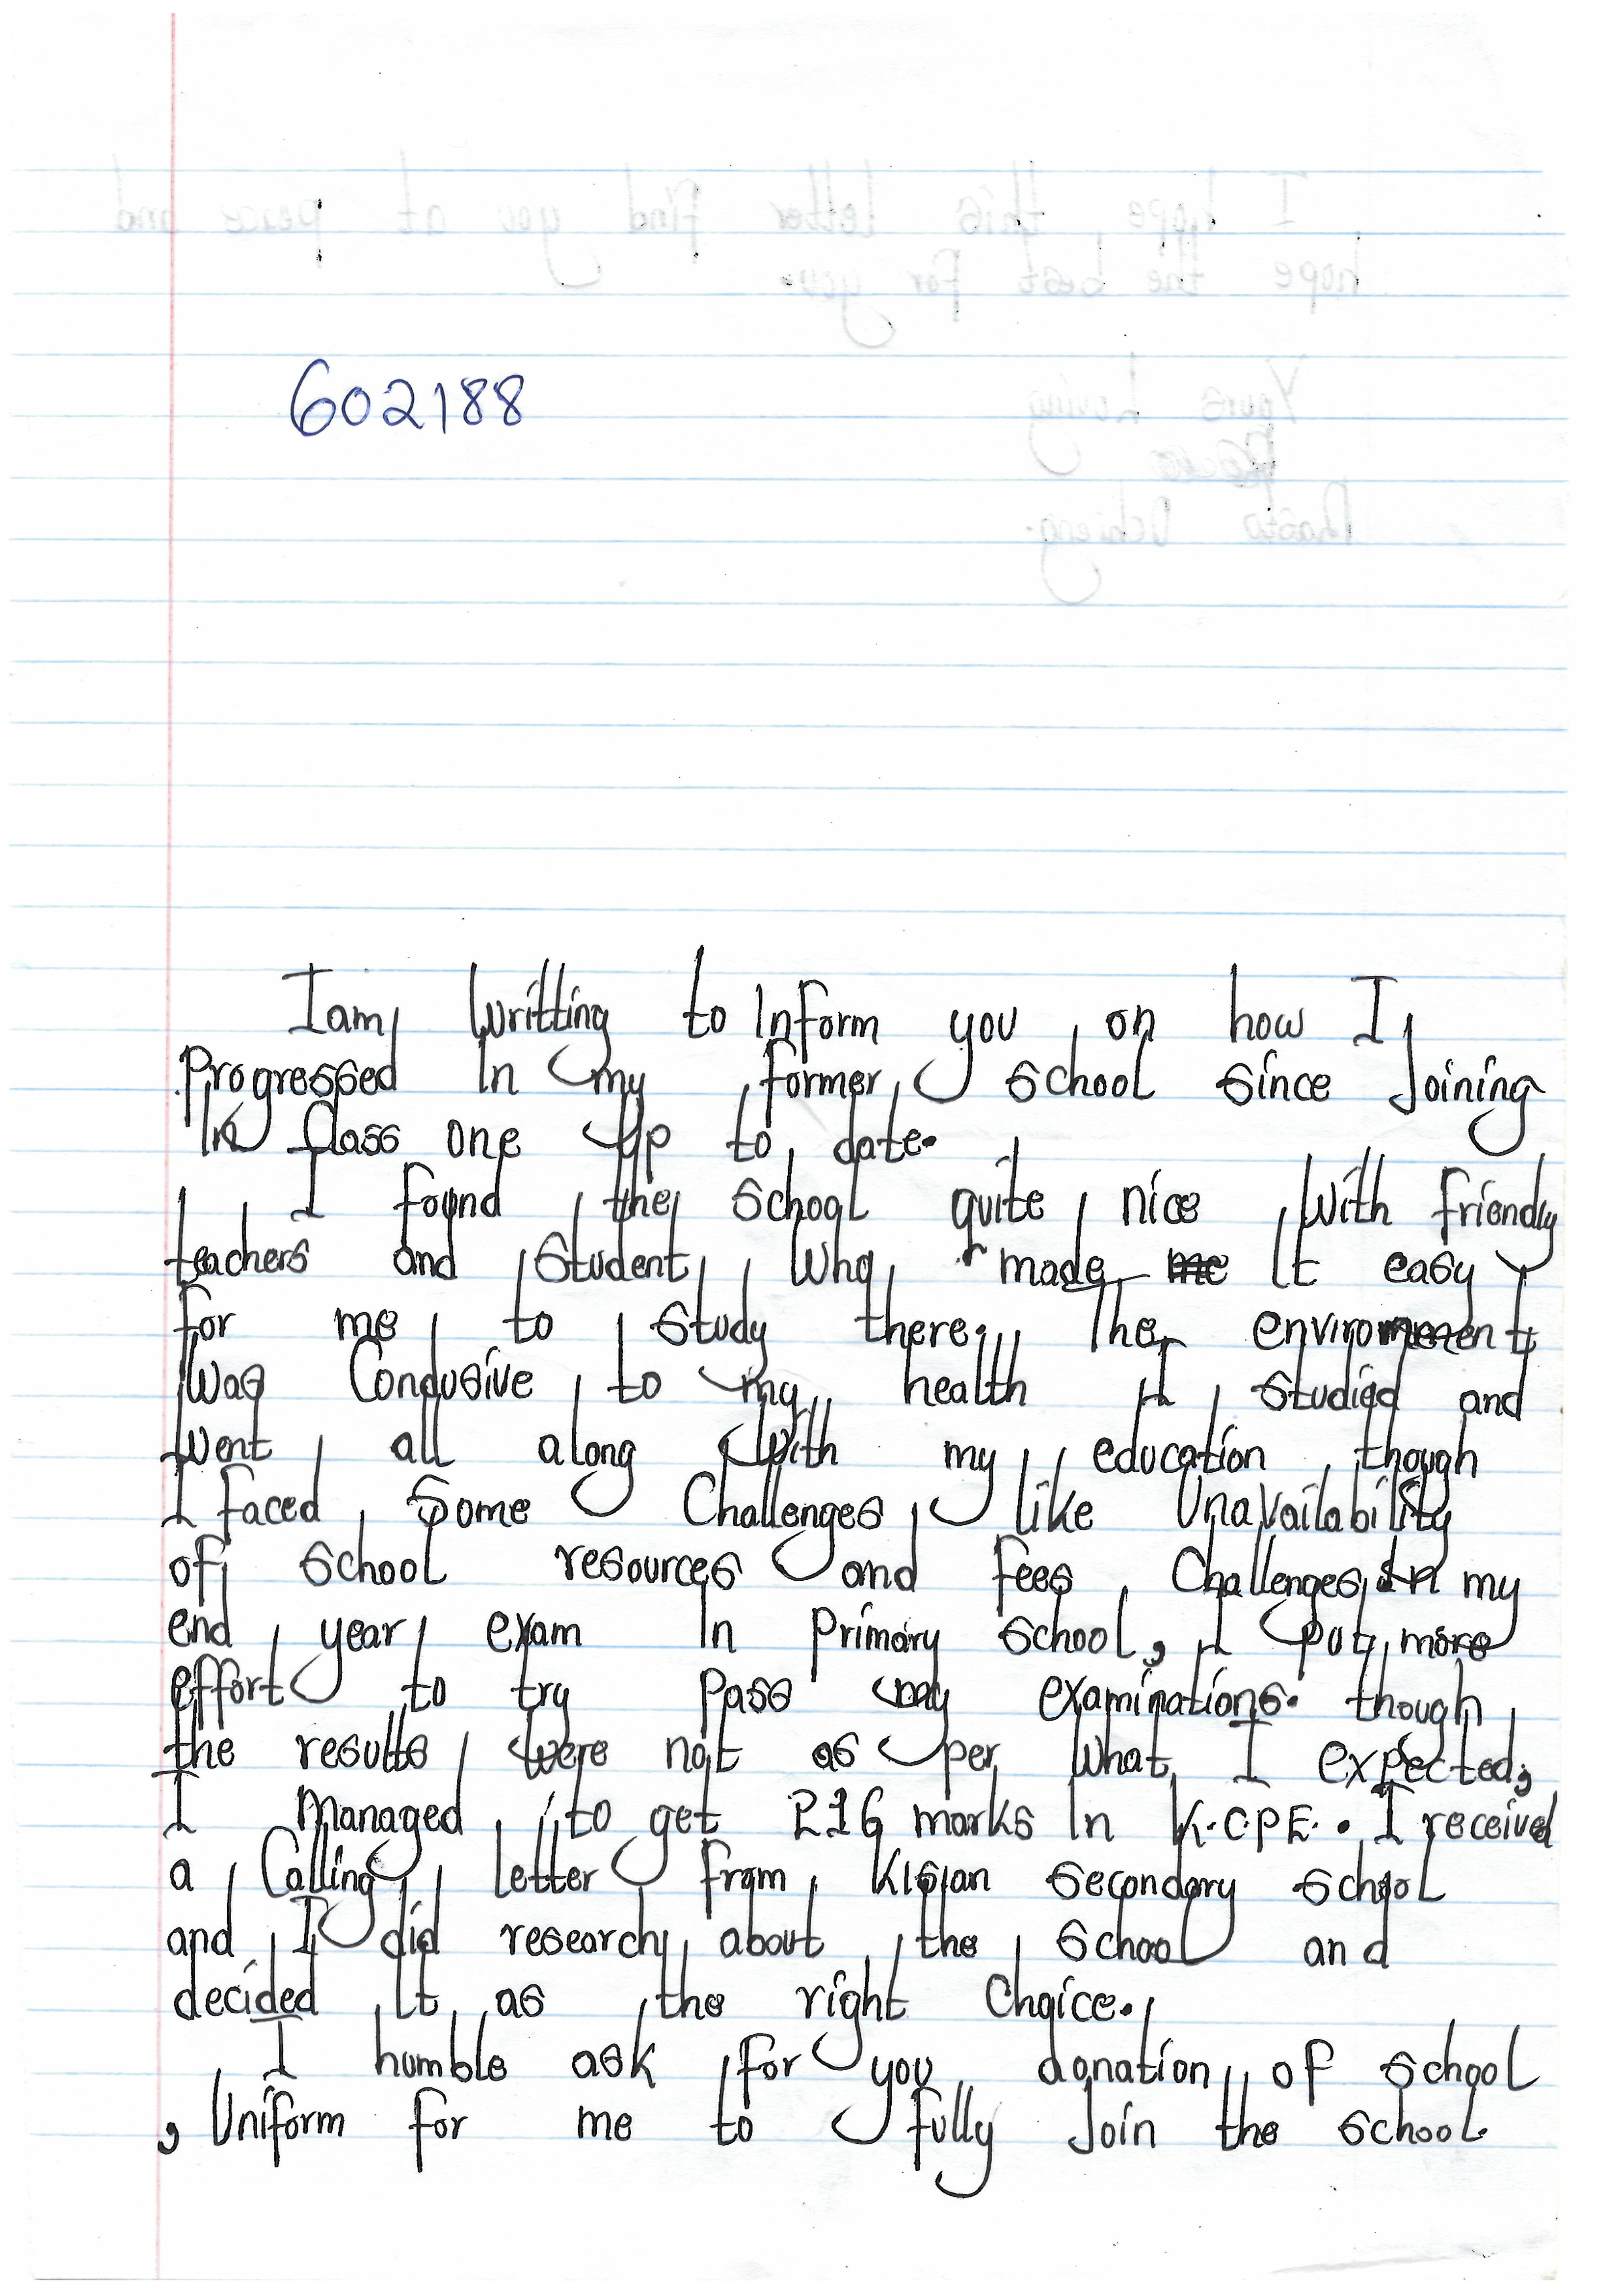 602188
I am writting to Inform you on how I
Progressed In my former school since Joining
In Class one Up to date.
I found the school quite nice with friendly
teachers and student who made me It easy
for me to study there. The environment
was Condusive to my health I studied and
went all along with my education though
I faced some Challenges like Unavailability
of school resources and fees Challenges In my
end year exam In Primary school, I put more
effort to try Pass my examinations. though
the results were not as per what I expected,
I Managed to get 216 marks In K.C.P.E. I received
a Calling letter from Kisian secondary school
and I did research about the school and
decided It as the right Choice.
I humble ask for you donation of school
, Uniform for me to fully Join the school.
I hope this letter find you at peace and
hope the best for you.
Yours loving
Ochieng.